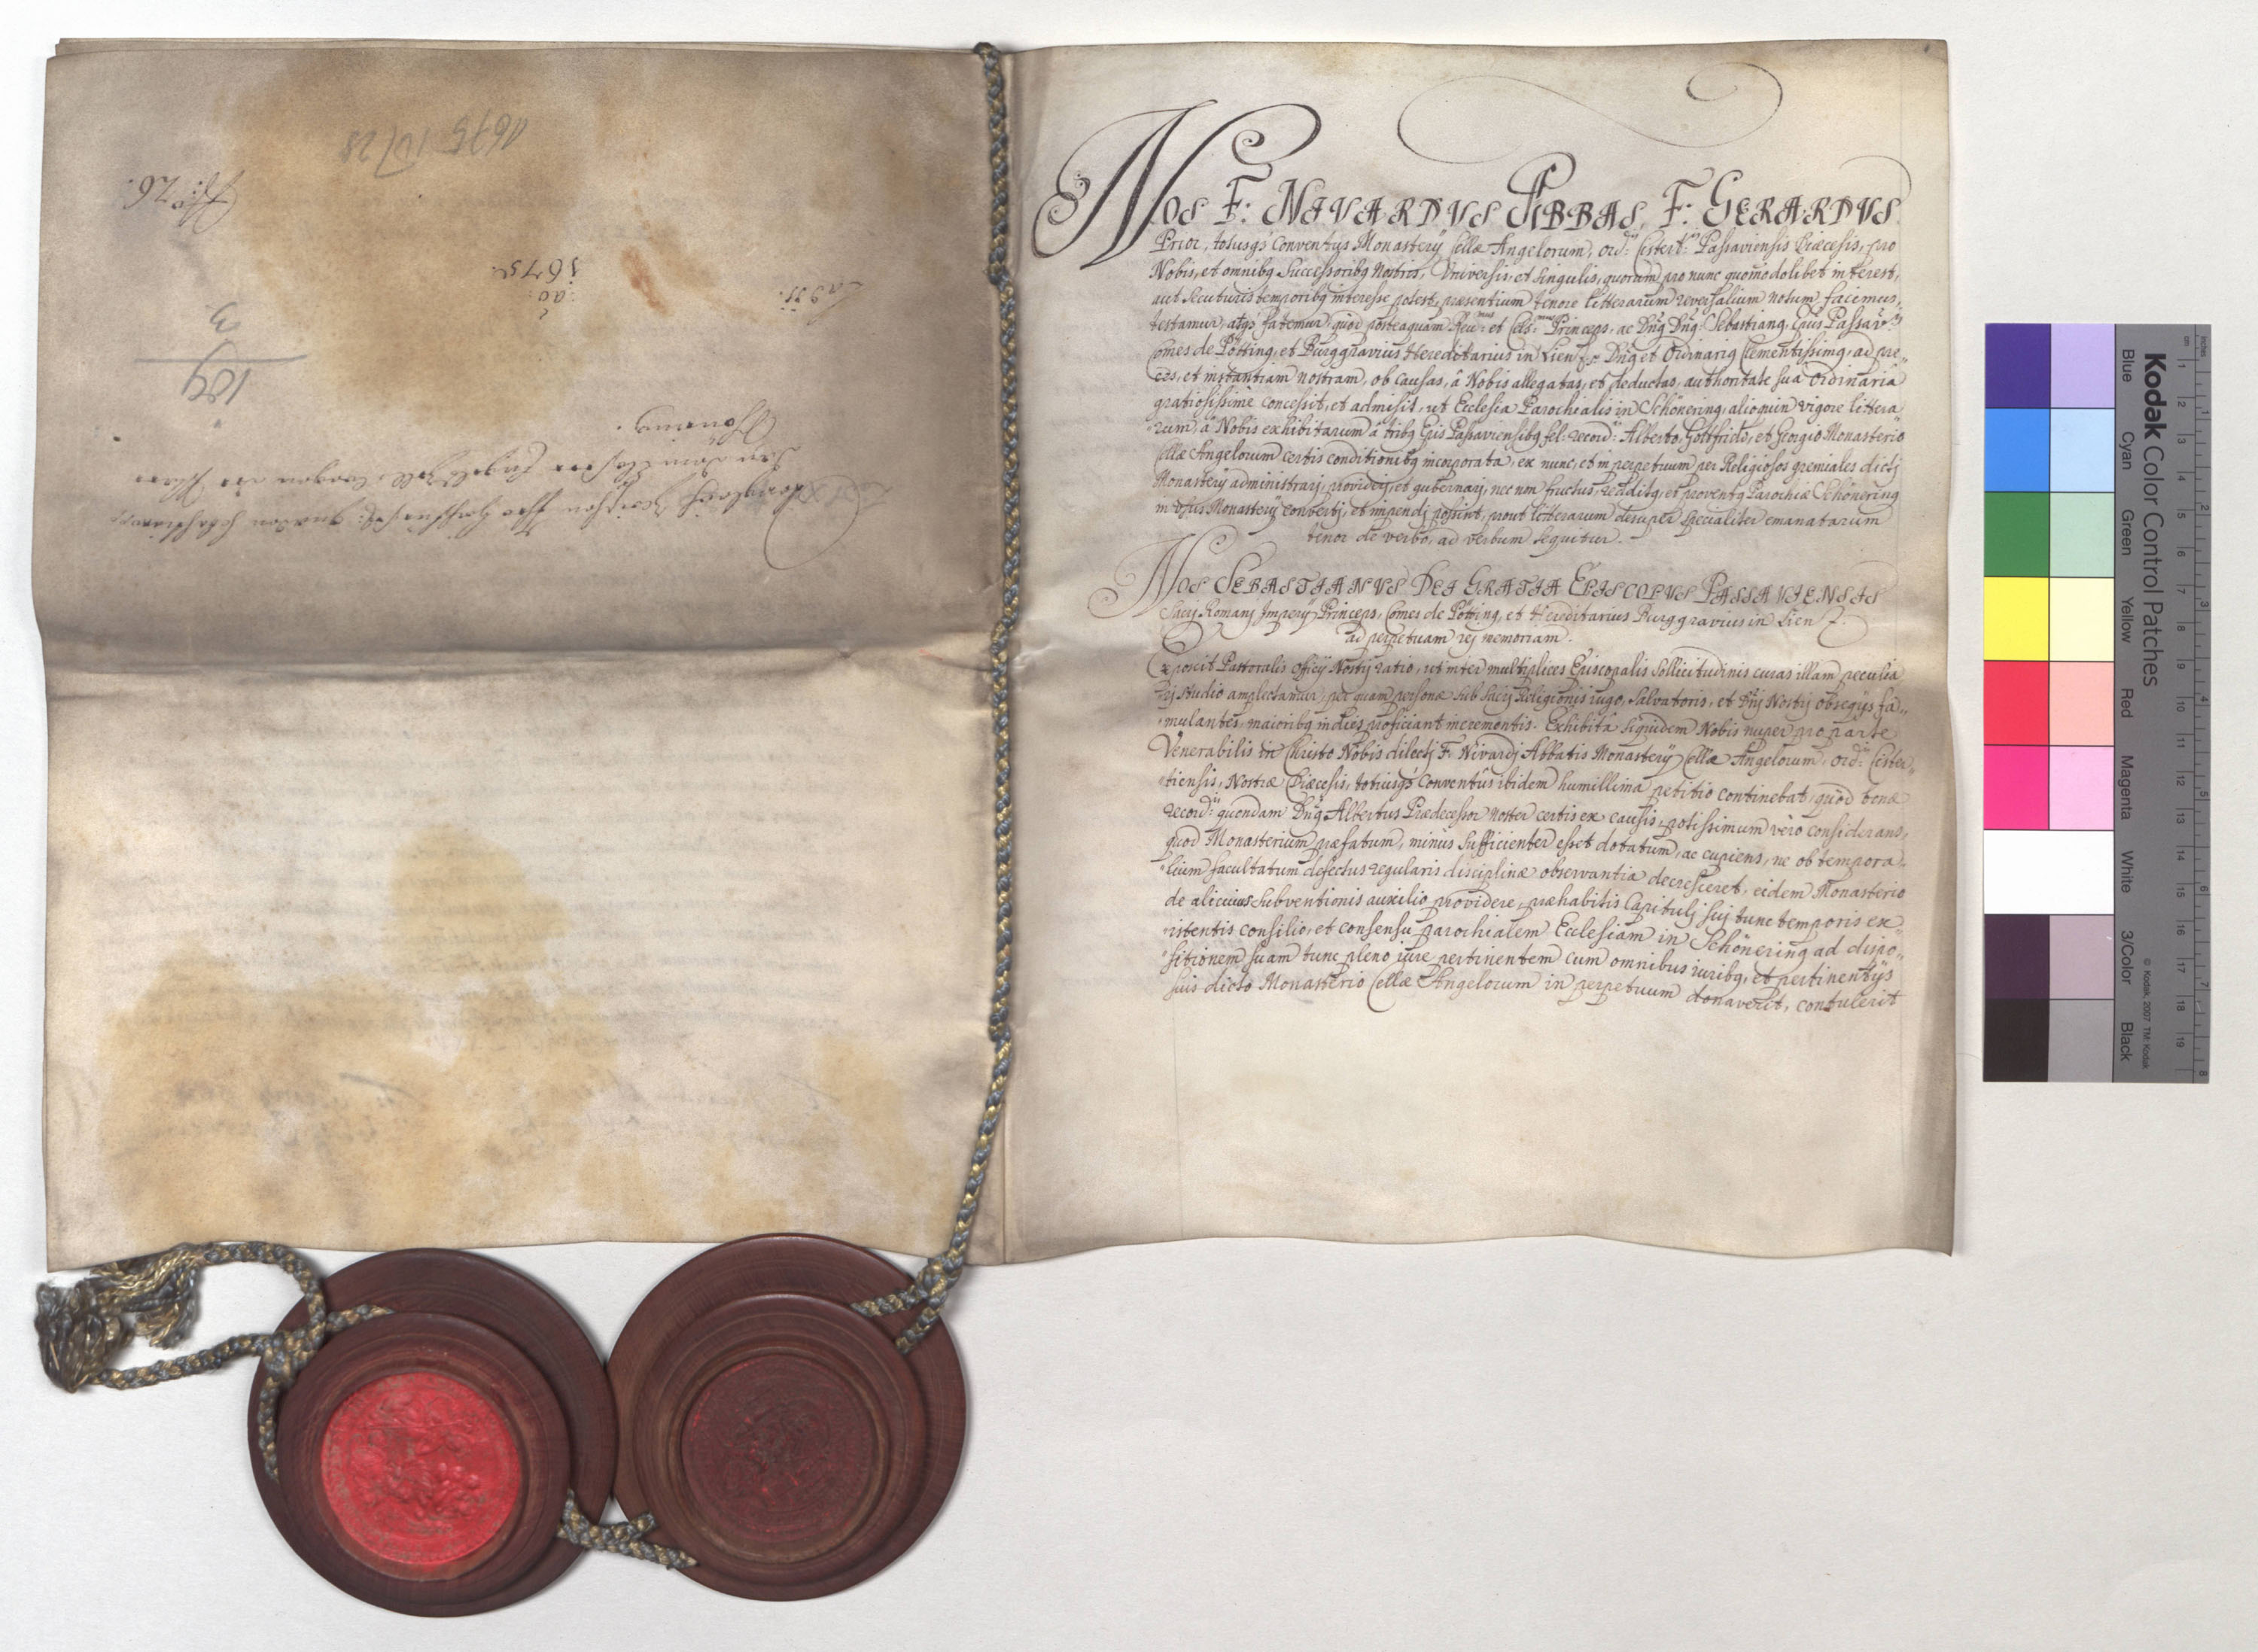 NOS F: NIVARDVS ABBAS, F: GERARDVS
Prior, totusq́ Conventus Monasterÿ Cellæ Angelorum, Ord: Cistert: Passaviensis Diæcesis, pro
Nobis, et omnibq Successoribq Nostris, Universis, et singulis, quorum pro nunc quomodolibet interest,
aut secuturis temporibq interesse potest, præsentium tenore litterarum reversalium notum facimus,
testamur, atq́ fatemur, quod posteaquam Reu:mus et Cels:mus Princeps, ac Dnq Dnq Sebastianq, Epus Passav:
Comes de Pötting, et Burggravius Hereditarius in Lien Dnq et Ordinariq Clementissimq, ad pre„
ces, et instantiam nostram, ob causas, â Nobis allegatas, et deductas, authoritate sua Ordinaria
gratiosissime concessit, et admisit, ut Ecclesia Parochialis in Schönering, alioquin vigore littera„
rum, â Nobis exhibitarum â tribq Epis Passaviensibq fel: record: Alberto, Gottfrido, et Georgio Monasterio
Cellæ Angelorum certis conditionibq incorporata, ex nunc, et in perpetuum per Religiosos gremiales dictj
Monasterÿ administrarj, providerj, et gubernarj, nec non fructus, redditq, et proventq Parochiæ Schönering
in usus Monasterÿ convertj, et impendj possint, prout litterarum desuper specialiter emanatarum
tenor de verbo, ad verbum sequitur.
NOS SEBASTIANVS DEI GRATIA EPISCOPVS PASSAVIENSIS
Sacrj Romanj Imperÿ Princeps, Comes de Pötting, et Hereditarius Burggravius in Lien
ad perpetuam rej memoriam.
Exposcit Pastoralis Officÿ Nostrj ratio, ut inter multiplices Episcopalis sollicitudinis curas illam peculia„
rj studio amplectamur, per quam personæ sub sacrj Religionis iugo, Salvatoris, et Dnj Nostrj obseqÿs fa„
mulantes, maioribq in dies proficiant incrementis. Exhibita siquidem Nobis nuper pro parte
Venerabilis in Christo Nobis dilectj F. Nivardj Abbatis Monasterÿ Cellæ Angelorum, Ord: Cister„
tiensis, Nostræ Diæcesis, totiusq́ Conventûs ibidem humillima petitio continebat, quod bonæ
record: quondam Dnq Albertus Prædecessor Noster certis ex causis, potissimum vero considerans,
quod Monasterium præfatum, minus sufficienter esset dotatum, ac cupiens, ne ob tempora„
lium facultatum defectus regularis disciplinæ observantia decresceret, eidem Monasterio
de alicuius subventionis auxilio providere, præhabitis Capitulj suj tunc temporis ex„
istentis consilio, et consensu parochialem Ecclesiam in Schönering ad dispo„
sitionem suam tunc pleno jure pertinentem cum omnibus iuribq, et pertinentÿs
suis dicto Monasterio Cellæ Angelorum in perpetuum donaverit, contulerit
1675 IV 28
No: 26.
ao:
1675.
189
3
Kodak Color Control Patches
Blue Cyan Green Yellow Red Magenta White 3/Color Black
© Kodak, 2007 TM: Kodak
inches 1 2 3 4 5 6 7 8
cm 1 2 3 4 5 6 7 8 9 10 11 12 13 14 15 16 17 18 19